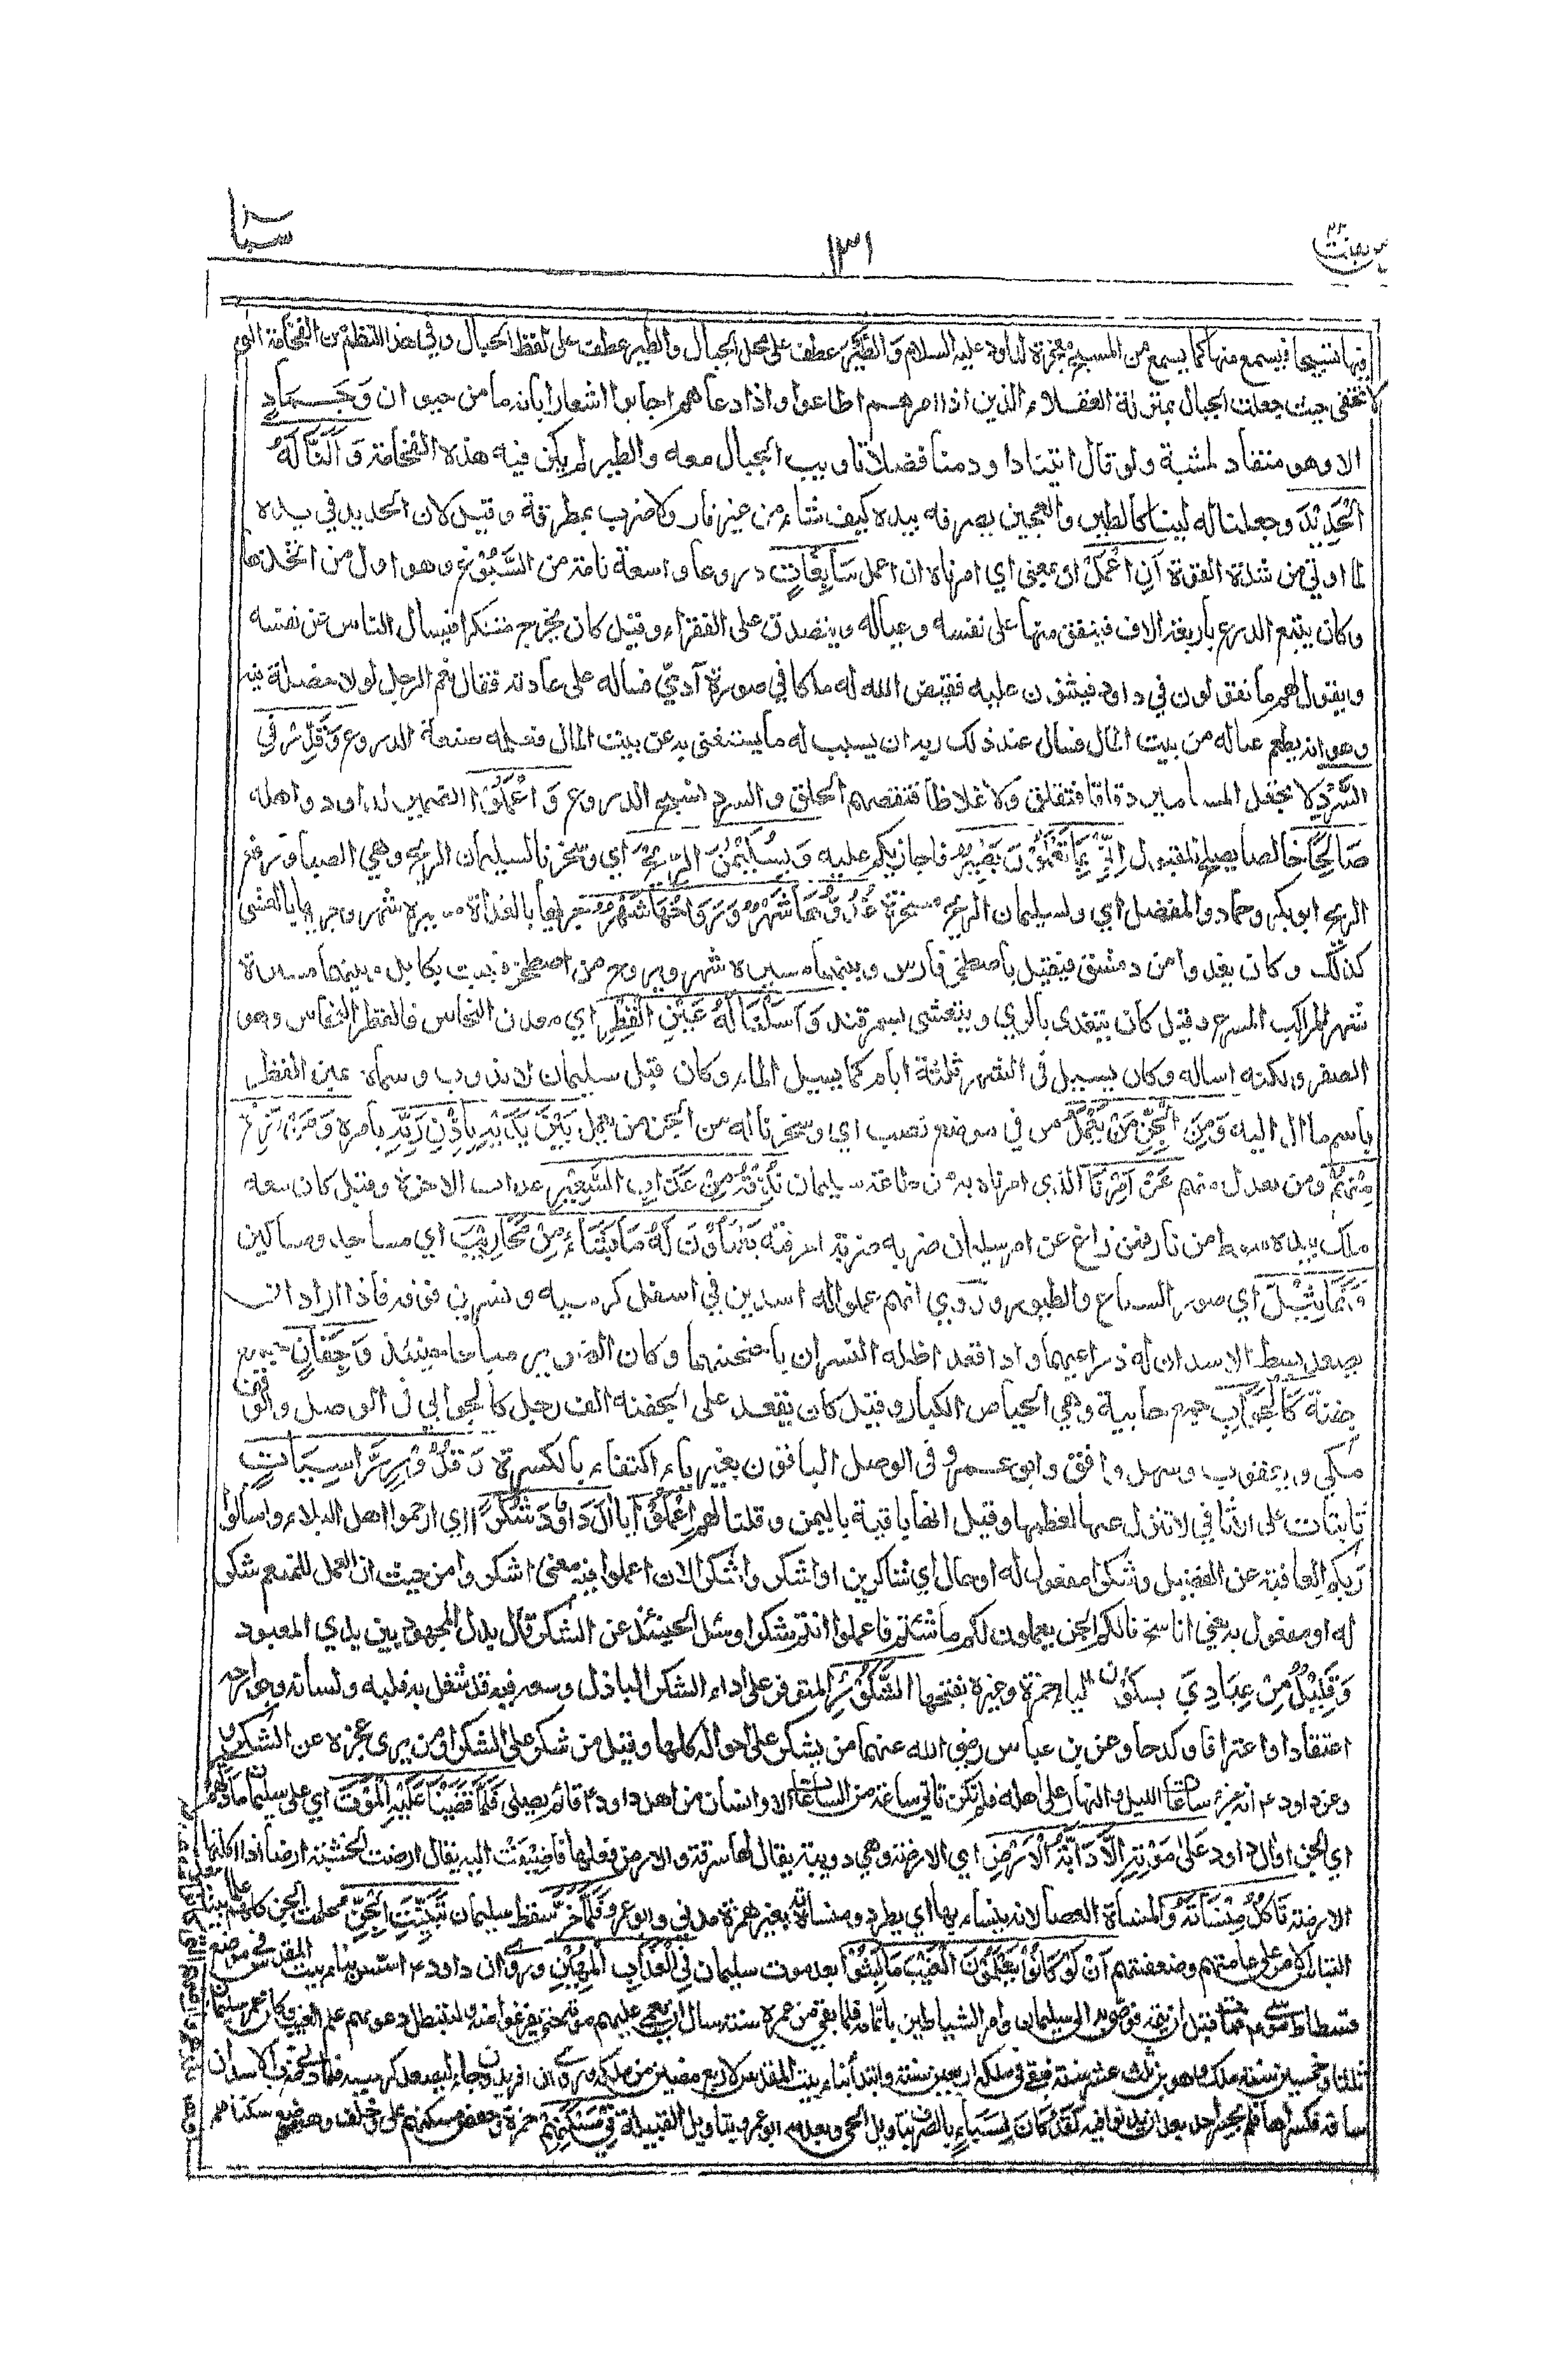 ومن يقنت ٢٢
١٣١
سبا
فيها تسبيحا فيسمع منها كما يسمع من المسبح معجزة لداود عليه السلام وَالطَّيْرَ عطف على محل الجبال والطير عطف على لفظ الجبال وفي هذا النظم من الفخامة التي
لا تخفى حيث جعلت الجبال بمنزلة العقلاء الذين اذا امرهم اطاعوا واذا دعاهم اجابوا اشعارا بانه ما من حيوان وَجَمادٍ
الا وهو منقاد لمشية ولو قال اتينا داود منا فضلا تاويب الجبال معه والطير لم يكن فيه هذه الفخامة وَاَلَنَّا لَهُ
الْحَدِيْدَ وجعلناله لينا كالطين والعجين يصرفه بيده كيف شاء من غير نار ولا ضرب بمطرقة وقيل لان الحديد في يده
لما اوتي من شدة القوة اَنِ اعْمَلْ ان بمعنى اي امرناه ان اعمل سَابِغَاتٍ دروعا واسعة تامة من السُّبُوْغ وهو اول من اتخذها
وكان يبيع الدرع باربعة الاف فينفق منها على نفسه وعياله ويتصدق على الفقراء وقيل كان يخرج متنكرا فيسال الناس عن نفسه
ويقول لهم ما تقولون في داود فيثنون عليه فقيض الله له ملكا في صورة آدمي فساله على عادته فقال نعم الرجل لولا خصلة فيه
وهو انه يطعم عياله من بيت المال فسال عند ذلك ربه ان يسبب له ما يستغني به عن بيت المال فعلمه صنعة الدروع وَّقَدِّرْ في
السَّرْدِ لا تجعل المسامير دقاقا فتقلق ولا غلاظا فتفصم الحلق والسرد نسج الدروع وَاعْمَلُوْا الضمير لداود واهله
صَالِحًا خالصا يصلح للقبول اِنِّيْ بِمَا تَعْمَلُوْنَ بَصِيْرٌ فاجازيكم عليه وَلِسُلَيْمٰنَ الرِّيْحَ اي وسخرنا لسليمان الريح وهي الصبا ورفع
الريح ابو بكر وحماد والمفضل اي ولسليمان الريح مسخرة غُدُوُّهَا شَهْرٌ وَّرَوَاحُهَا شَهْرٌ جريها بالغداة مسيرة شهر وجريها بالعشي
كذلك وكان يغدوا من دمشق فيقيل باصطخر فارس وبينهما مسيرة شهر ويروح من اصطخر فيبيت بكابل وبينهما مسيرة
شهر للراكب المسرع وقيل كان يتغدى بالري ويتعشى بسمرقند وَاَسَلْنَا لَهُ عَيْنَ الْقِطْرِ اي معدن النحاس فالقطر النحاس وهو
الصفر ولكنه اساله وكان يسيل في الشهر ثلثة ايام كما يسيل الماء وكان قبل سليمان لا يذوب وسماه عين القطر
باسم ما ال اليه وَمِنَ الْجِنِّ مَنْ يَّعْمَلُ من في موضع نصب اي وسخرنا له من الجن من يعمل بَيْنَ يَدَيْهِ بِاِذْنِ رَبِّه بامره وَمَنْ يَّزِغْ
مِنْهُمْ ومن يعدل منهم عَنْ اَمْرِنَا الذي امرناه به من طاعة سليمان نُذِقْهُ مِنْ عَذَابِ السَّعِيْرِ عذاب الاخرة وقيل كان معه
ملك بيده سوط من نار فمن زاغ عن امر سليمان ضربه ضربة احرقته يَعْمَلُوْنَ لَهُ مَا يَشَاءُ مِنْ مَّحَارِيْبَ اي مساجد ومساكين
وَتَمَاثِيْلَ اي صور السباع والطيور وروي انهم عملوا له اسدين في اسفل كرسيه ونسرين فوقه فاذا اراد ان
يصعد بسط الاسدان له ذراعيهما واذا قعد اظله النسران باجنحتهما وكان التصوير مباحا حينئذ وَجِفَانٍ جمع
جفنة كَالْجَوَابِ جمع جابية وهي الحياض الكبار وقيل كان يقعد على الجفنة الف رجل كالجوابي في الوصل والوقف
مكي ويعقوب وسهل وافق وابو عمرو في الوصل الباقون بغير ياء اكتفاء بالكسرة وَقُدُوْرٍ رَّاسِيَاتٍ
ثابتات على الاثافي لا تنزل عنها لعظمها وقيل انها باقية باليمن وقلنا لهم اِعْمَلُوْا اٰلَ دَاوٗدَ شُكْرًا اي ارحموا اهل البلاء واسالوا
ربكم العافية عن الفضيل وشكرا مفعول له او حال اي شاكرين او اشكروا شكرا لان اعملوا فيه معنى اشكروا من حيث ان العمل للمنعم شكر
له او مفعول به يعني انا سخرنا لكم الجن يعملون لكم ما شئتم فاعملوا انتم شكرا وسئل الجنيد عن الشكر قال بذل المجهود بين يدي المعبود
وَقَلِيْلٌ مِّنْ عِبَادِيَ بسكون الياء حمزة وغيره بفتحها الشَّكُوْرُ المتوفر على اداء الشكر الباذل وسعه فيه قد شغل به قلبه ولسانه وجوارحه
اعتقادا واعترافا وكدحا وعن بن عباس رضي الله عنهما من يشكر على احواله كلها وقيل من شكر على الشكر او من يرى عجزه عن الشكر
وعن داود ع انه جزء ساعات الليل والنهار على اهله فلم تكن تاتي ساعة من الساعات الا وانسان من اهل داود ع قائم يصلي فَلَمَّا قَضَيْنَا عَلَيْهِ الْمَوْتَ اي على سليمان مَا دَلَّهُمْ
اي الجن او آل داود عَلٰى مَوْتِه اِلَّا دَابَّةُ الْاَرْضِ اي الارضة وهي دويبة يقال لها سرفة والارض فعلها فاضيفت اليه يقال ارضت الخشبة ارضا اذا اكلتها
الارضة تَاْكُلُ مِنْسَاَتَهُ والمنسأة العصا لانه ينسأ بها اي يطرد ومنساته بغير همزة مدني وابو عمرو فَلَمَّا خَرَّ سقط سليمان تَبَيَّنَتِ الْجِنُّ علمت الجن كلهم علما بينا
التباس الامر على عامتهم وضعفتهم اَنْ لَّوْ كَانُوْا يَعْلَمُوْنَ الْغَيْبَ مَا لَبِثُوْا بعد موت سليمان فِي الْعَذَابِ الْمُهِيْنِ وروي ان داود ع اسس بناء بيت المقدس في موضع
فسطاط موسى ع فمات قبل ان يتمه فوصى به الى سليمان فامر الشياطين باتمامه فلما بقي من عمره سنة سال ان يعمى عليهم موته حتى يفرغوا منه ولتبطل دعوىهم علم الغيب وكان عمر سليمان
ثلثا وخمسين سنة ملك وهو بن ثلث عشرة سنة فبقي في ملكه اربعين سنة وابتدأ بناء بيت المقدس لاربع مضين من ملكه وروي ان افريدون جاء ليصعد كرسيه فلما دنا ضرب الاسدان
ساقه فكسراها فلم يجسر احد بعد ان يدنو اليه لَقَدْ كَانَ لِسَبَاٍ بالصرف بتاويل الحي وبعدمه ابو عمرو بتاويل القبيلة فِيْ مَسْكَنِهِمْ حمزة وحفص مسكنهم على وخلف وهو موضع سكناهم